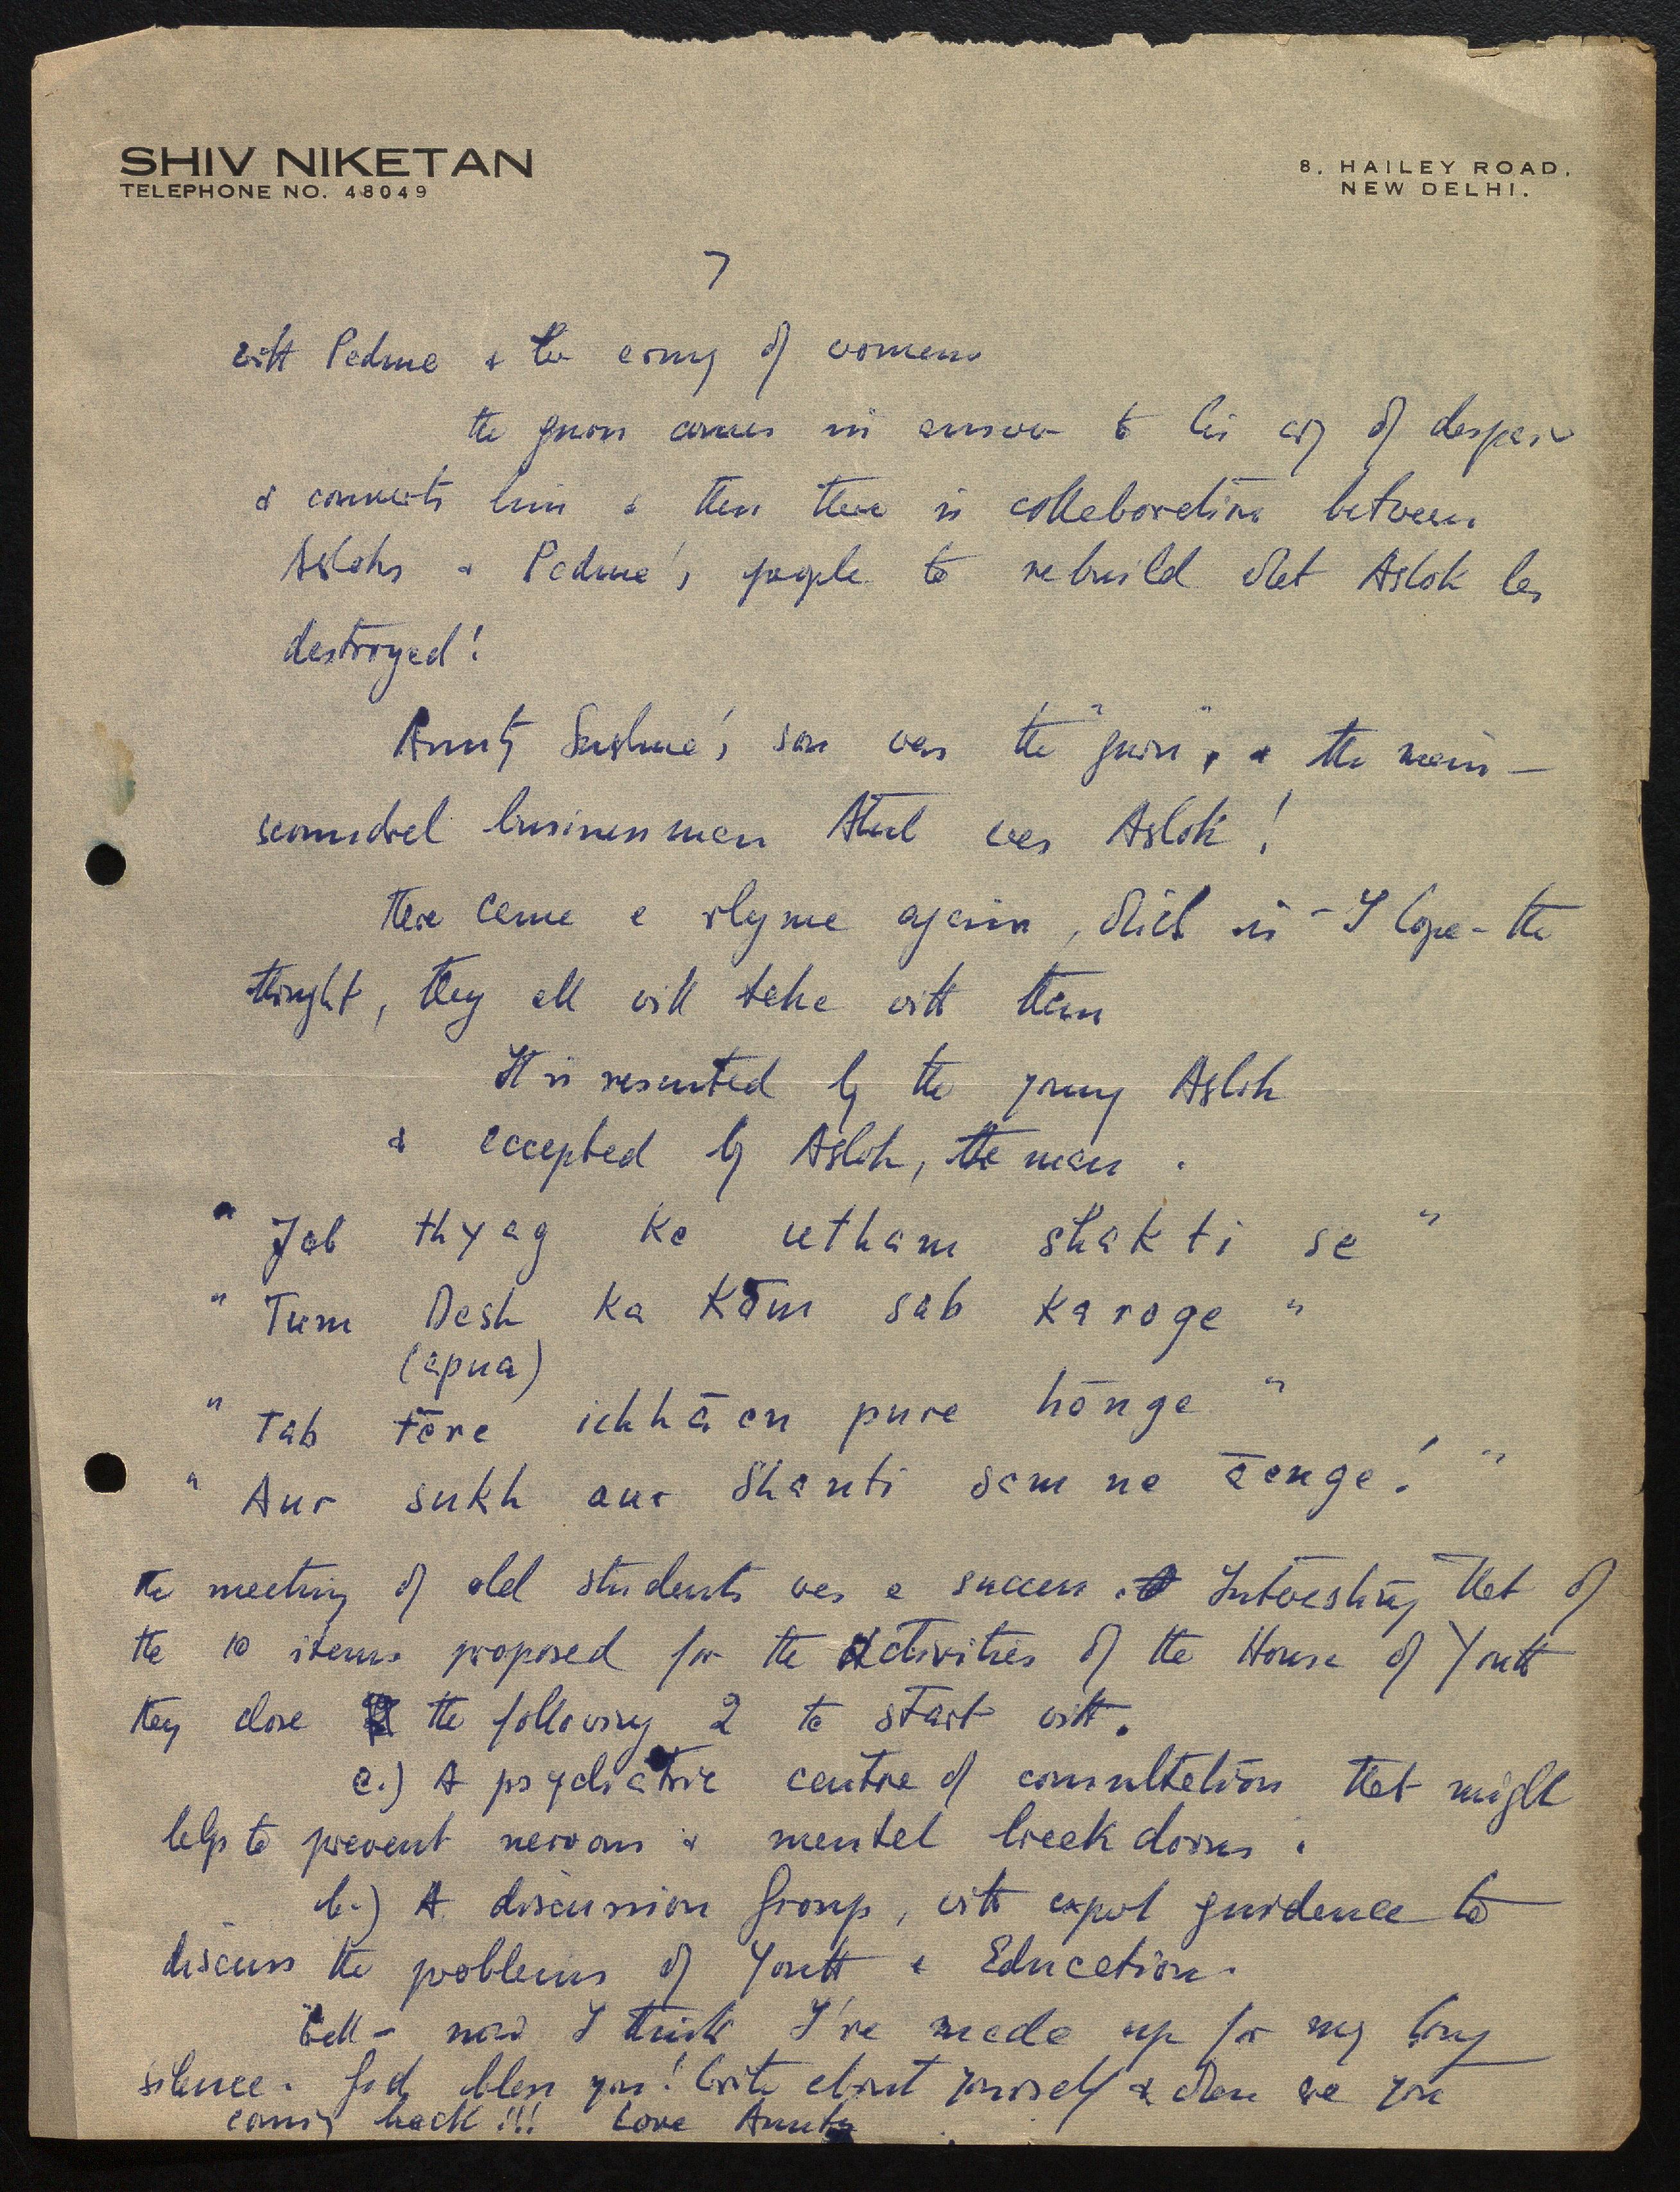 SHIV NIKETAN
TELEPHONE NO. 48049
8, HAILEY ROAD,
NEW DELHI.
7
with Padma & her army of women
the guru comes in answer to his cry of despair
& converts him & then there is collaboration between
Ashoks & Padma's people to rebuild what Ashok has
destroyed!
Aunty Sushma's son was the "guru", & the main-
scoundrel businessman Atul was Ashok!
there came a rhyme again, which is - I hope - the
thought, they all will take with them
It is resented by the young Ashok
& accepted by Ashok, the man.
"Jab thyag ke utham shakti se"
"Tum Desh ka Kām sab karoge"
(apna)
"Tab tēre ichhāen pure hōnge"
"Aur sukh aur Shanti samne āenge!"
the meeting of old students was a success. Interesting that of
the 10 items proposed for the Activities of the House of Youth
they chose the following 2 to start with.
a.) A psychiatric centre of consultation that might
help to prevent nervous & mental breakdowns.
b.) A discussion Group, with expert guidance to
discuss the problems of Youth & Education.
Well - now I think I've made up for my long
silence. God bless you! Write about yourself & when are you
coming back!!! Love Aunty